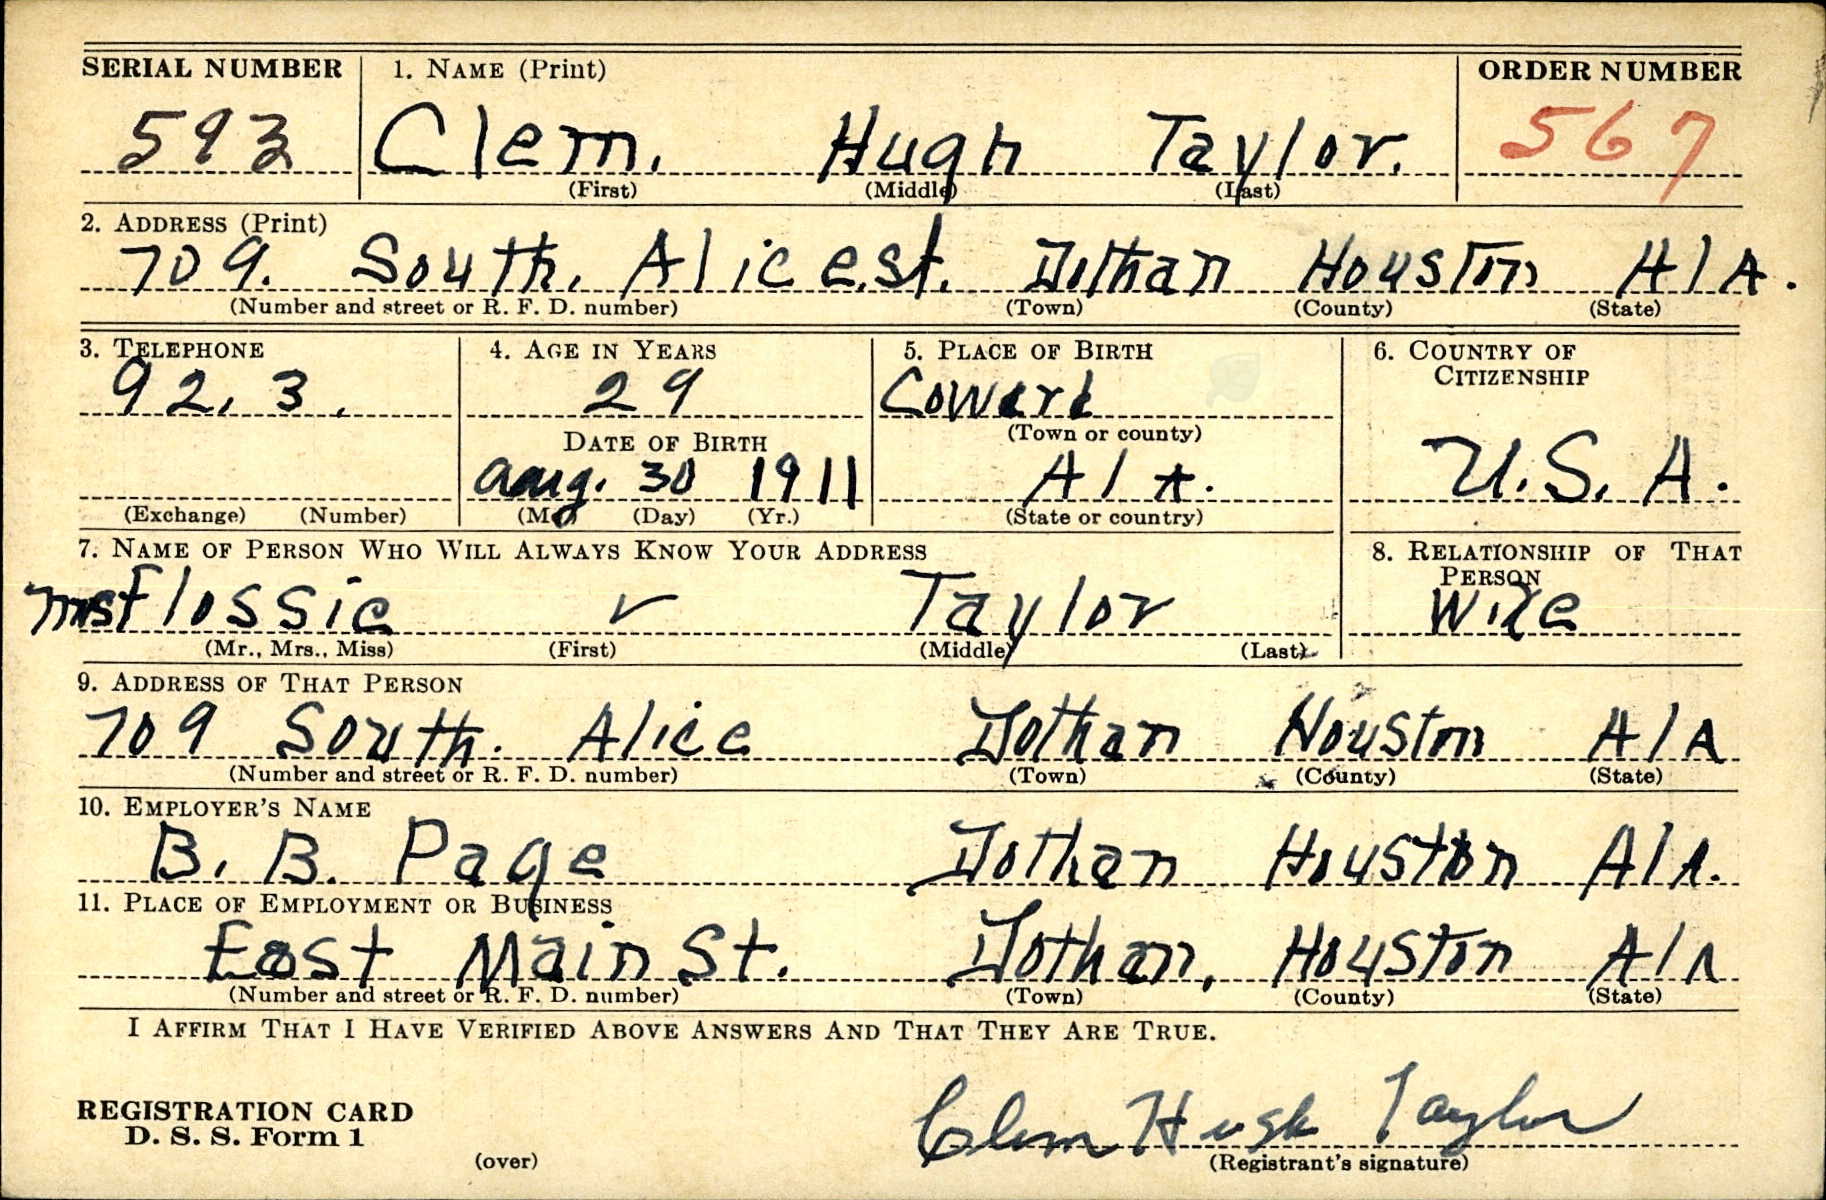 SERIAL NUMBER 1. NAME (Print) ORDER NUMBER
593 Clem. Hugh Taylor. 567
(First) (Middle) (Last)
2. ADDRESS (Print)
709. South. Alice.st. Dothan Houston AlA.
(Number and street or R. F. D. number) (Town) (County) (State)
3. TELEPHONE 4. AGE IN YEARS 5. PLACE OF BIRTH 6. COUNTRY OF
CITIZENSHIP
92, 3. 29 Coward
(Town or county)
DATE OF BIRTH
Aug. 30 1911 Ala. U.S. A.
(Exchange) (Number) (Mo.) (Day) (Yr.) (State or country)
7. NAME OF PERSON WHO WILL ALWAYS KNOW YOUR ADDRESS 8. RELATIONSHIP OF THAT
PERSON
mrs Flossie v Taylor Wife
(Mr., Mrs., Miss) (First) (Middle) (Last)
9. ADDRESS OF THAT PERSON
709 South. Alice Dothan Houston AlA
(Number and street or R. F. D. number) (Town) (County) (State)
10. EMPLOYER'S NAME
B. B. Page Dothan Houston AlA.
11. PLACE OF EMPLOYMENT OR BUSINESS
East Main St. Dothan, Houston AlA
(Number and street or R. F. D. number) (Town) (County) (State)
I AFFIRM THAT I HAVE VERIFIED ABOVE ANSWERS AND THAT THEY ARE TRUE.
REGISTRATION CARD
D. S. S. Form 1
Clem Hugh Taylor
(over) (Registrant's signature)